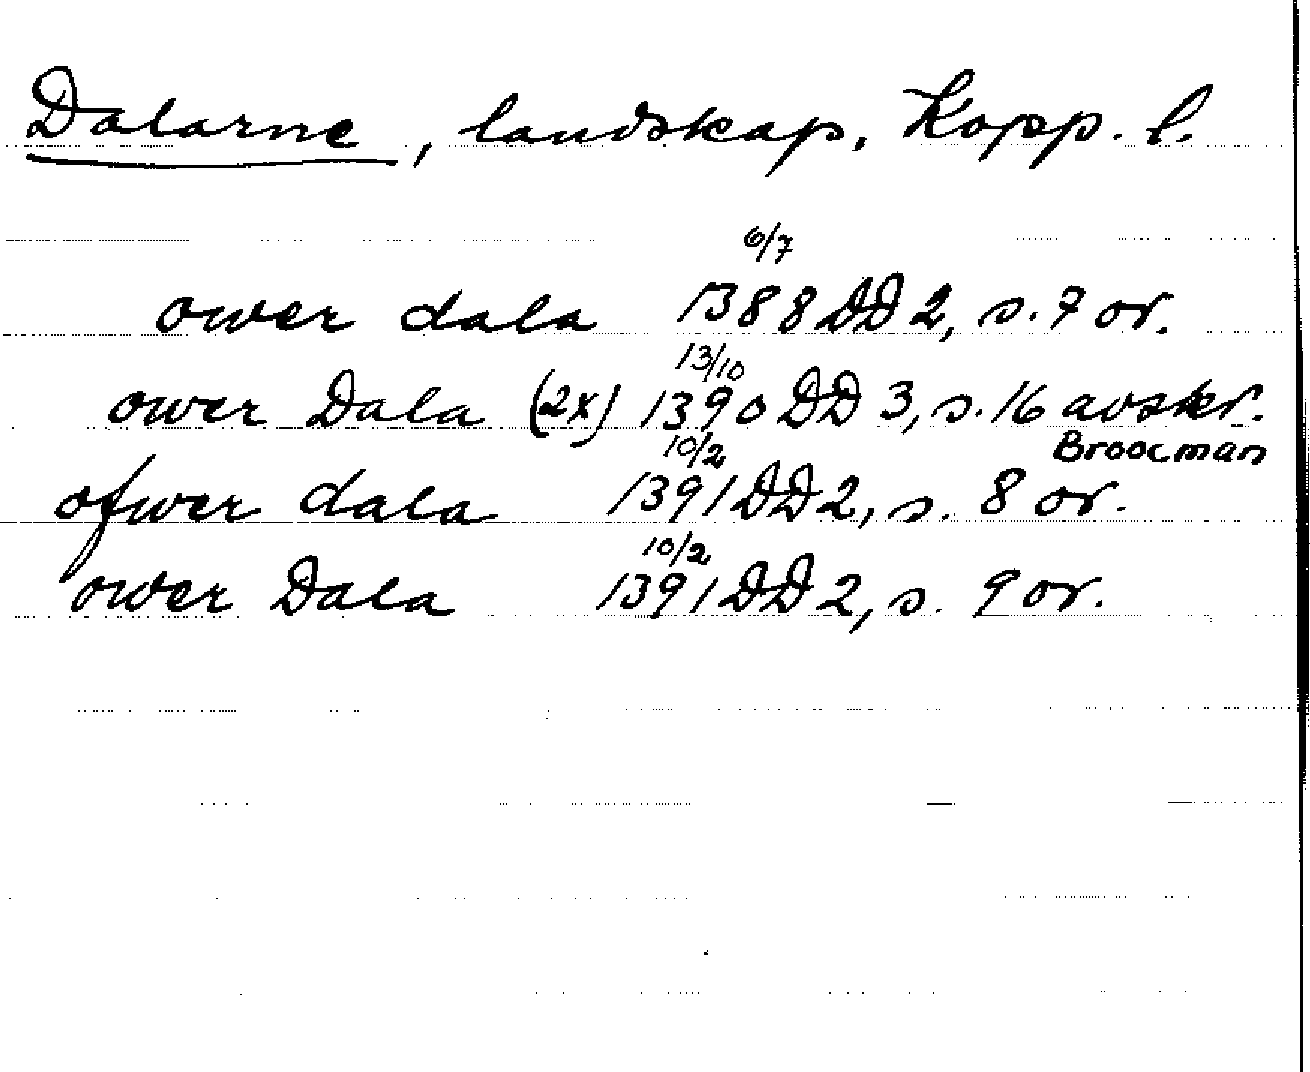 Dalarne, landskap, Kopp. l.
6/7
ower dala 1388 DD 2, s. 7 or.
13/10
ower Dala (2x) 1390 DD 3, s. 16 avskr.
10/2 Broocman
ofwer dala 1391 DD 2, s. 8 or.
10/2
ower Dala 1391 DD 2, s. 9 or.